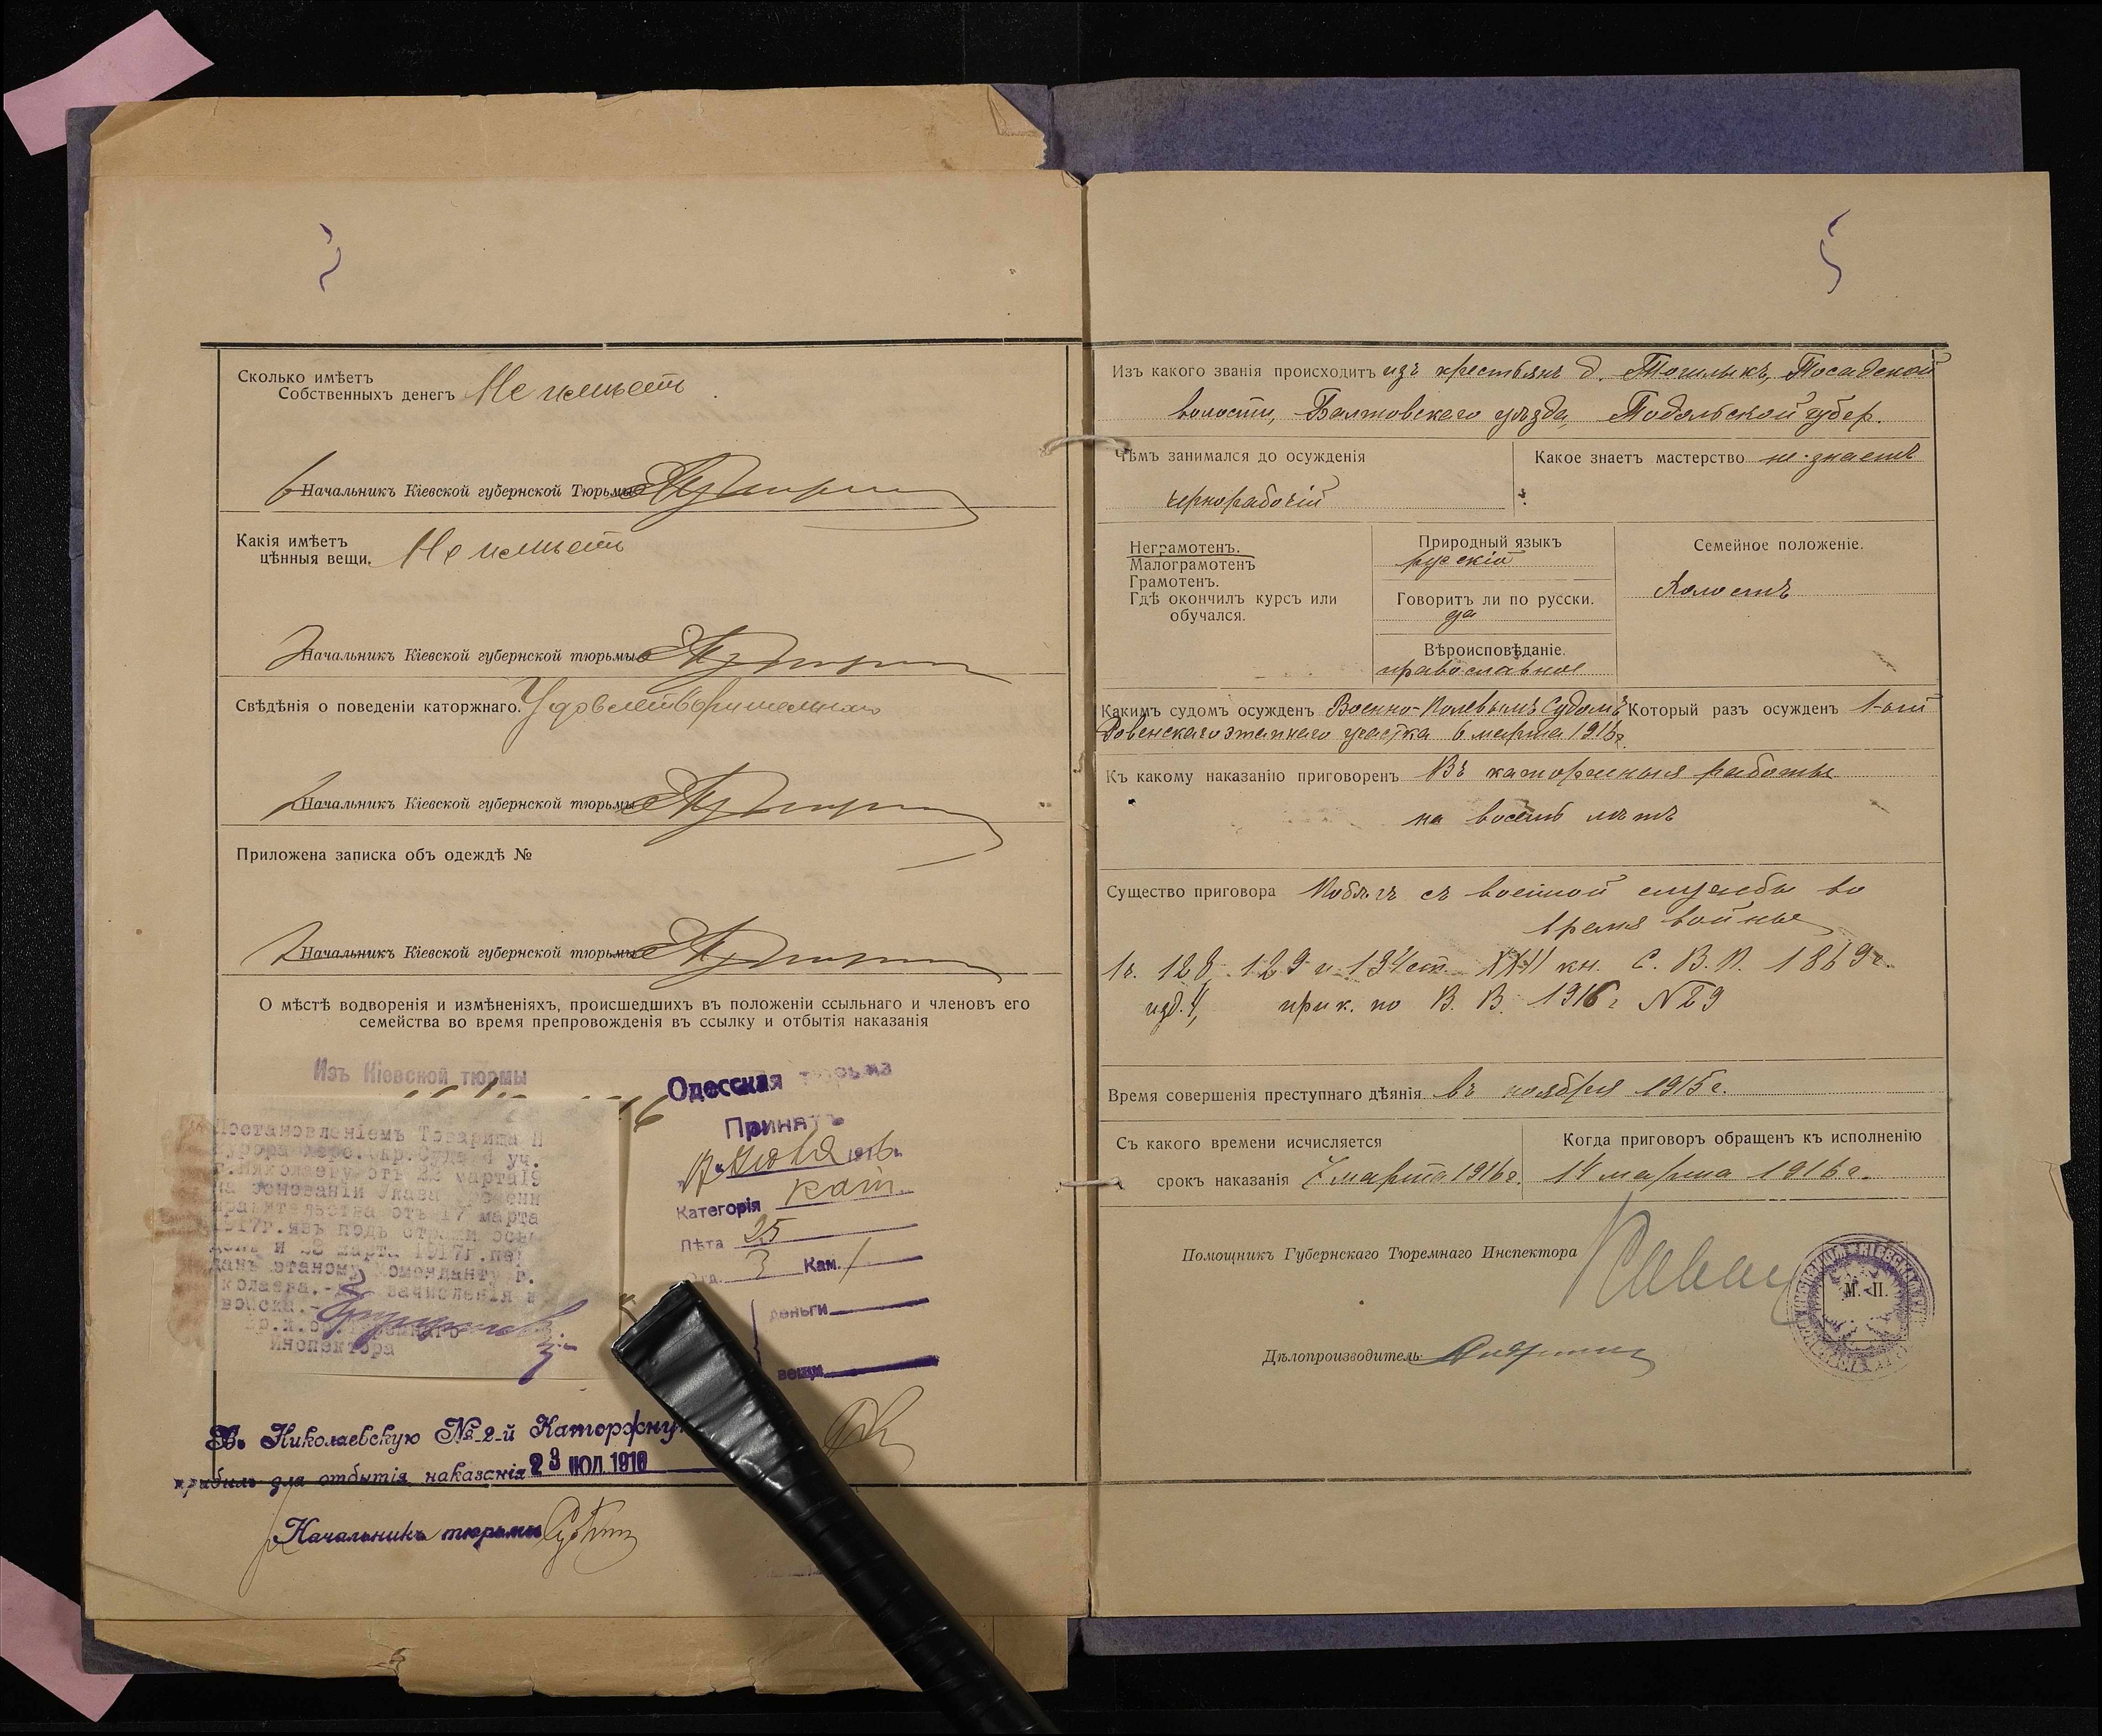 Сколько имѣетъ
Собственныхъ денегъ Не имѣетъ
Начальникъ Кіевской губернской Тюрьмы
Какія имѣетъ
цѣнныя вещи. Не имѣетъ
Начальникъ Кіевской губернской тюрьмы
Свѣдѣнія о поведеніи каторжнаго. Удовлетворительно
Начальникъ Кіевской губернской тюрьмы
Приложена записка объ одеждѣ №
Начальникъ Кіевской губернской тюрьмы
О мѣстѣ водворенія и измѣненіяхъ, происшедшихъ въ положеніи ссыльнаго и членовъ его
семейства во время препровожденія въ ссылку и отбытія наказанія
Изъ Кіевской тюрмы
Постановленіемъ Товарища П
курора Херс.Окр.Суда 8 уч.
г.Николаеву отъ 22 марта19
на основаніи Указа Времен
правительства отъ 17 марта
1917г.изъ подъ стражи осв
и 28 марта 1917г.пер
данъ этапному Коменданту г.
колаева.- зачисленія в
войска.-
Инспектора
Одесская тюрьма
Принятъ
Іюля 1916г.
Категорія кат.
Лѣта 25
Отд. 3 Кам. 1
деньги
вещи
Въ Николаевскую №-2-й Каторжну
прибылъ для отбытія наказанія 23 ІЮЛ.1916
Начальникъ тюрьмы
Изъ какого званія происходитъ изъ крестьянъ д. Посадской
волости, Балтовскаго уѣзда, Подольской губер.
Чѣмъ занимался до осужденія
чернорабочій
Какое знаетъ мастерство не знаетъ
Неграмотенъ.
Малограмотенъ
Грамотенъ.
Гдѣ окончилъ курсъ или
обучался.
Природный языкъ
русскій
Говоритъ ли по русски.
да
Вѣроисповѣданіе.
православное
Семейное положеніе.
Холостъ
Какимъ судомъ осужденъ Военно-Полевымъ Судомъ
Ровенскаго этапнаго участка 6 марта 1916г.
Который разъ осужденъ 1-ый
Къ какому наказанію приговоренъ Въ каторжныя работы
на восемь лѣтъ
Существо приговора Побѣгъ съ военной службы во
время войны
1ч. 128, 129 и 134 ст. XXII кн. С. В. П. 1869г.
изд. 4, прик. по В. В. 1916г №29
Время совершенія преступнаго дѣянія въ ноябрѣ 1915г.
Съ какого времени исчисляется
срокъ наказанія 7 марта 1916г.
Когда приговоръ обращенъ къ исполненію
14 марта 1916г.
Помощникъ Губернскаго Тюремнаго Инспектора
М. П.
Дѣлопроизводитель